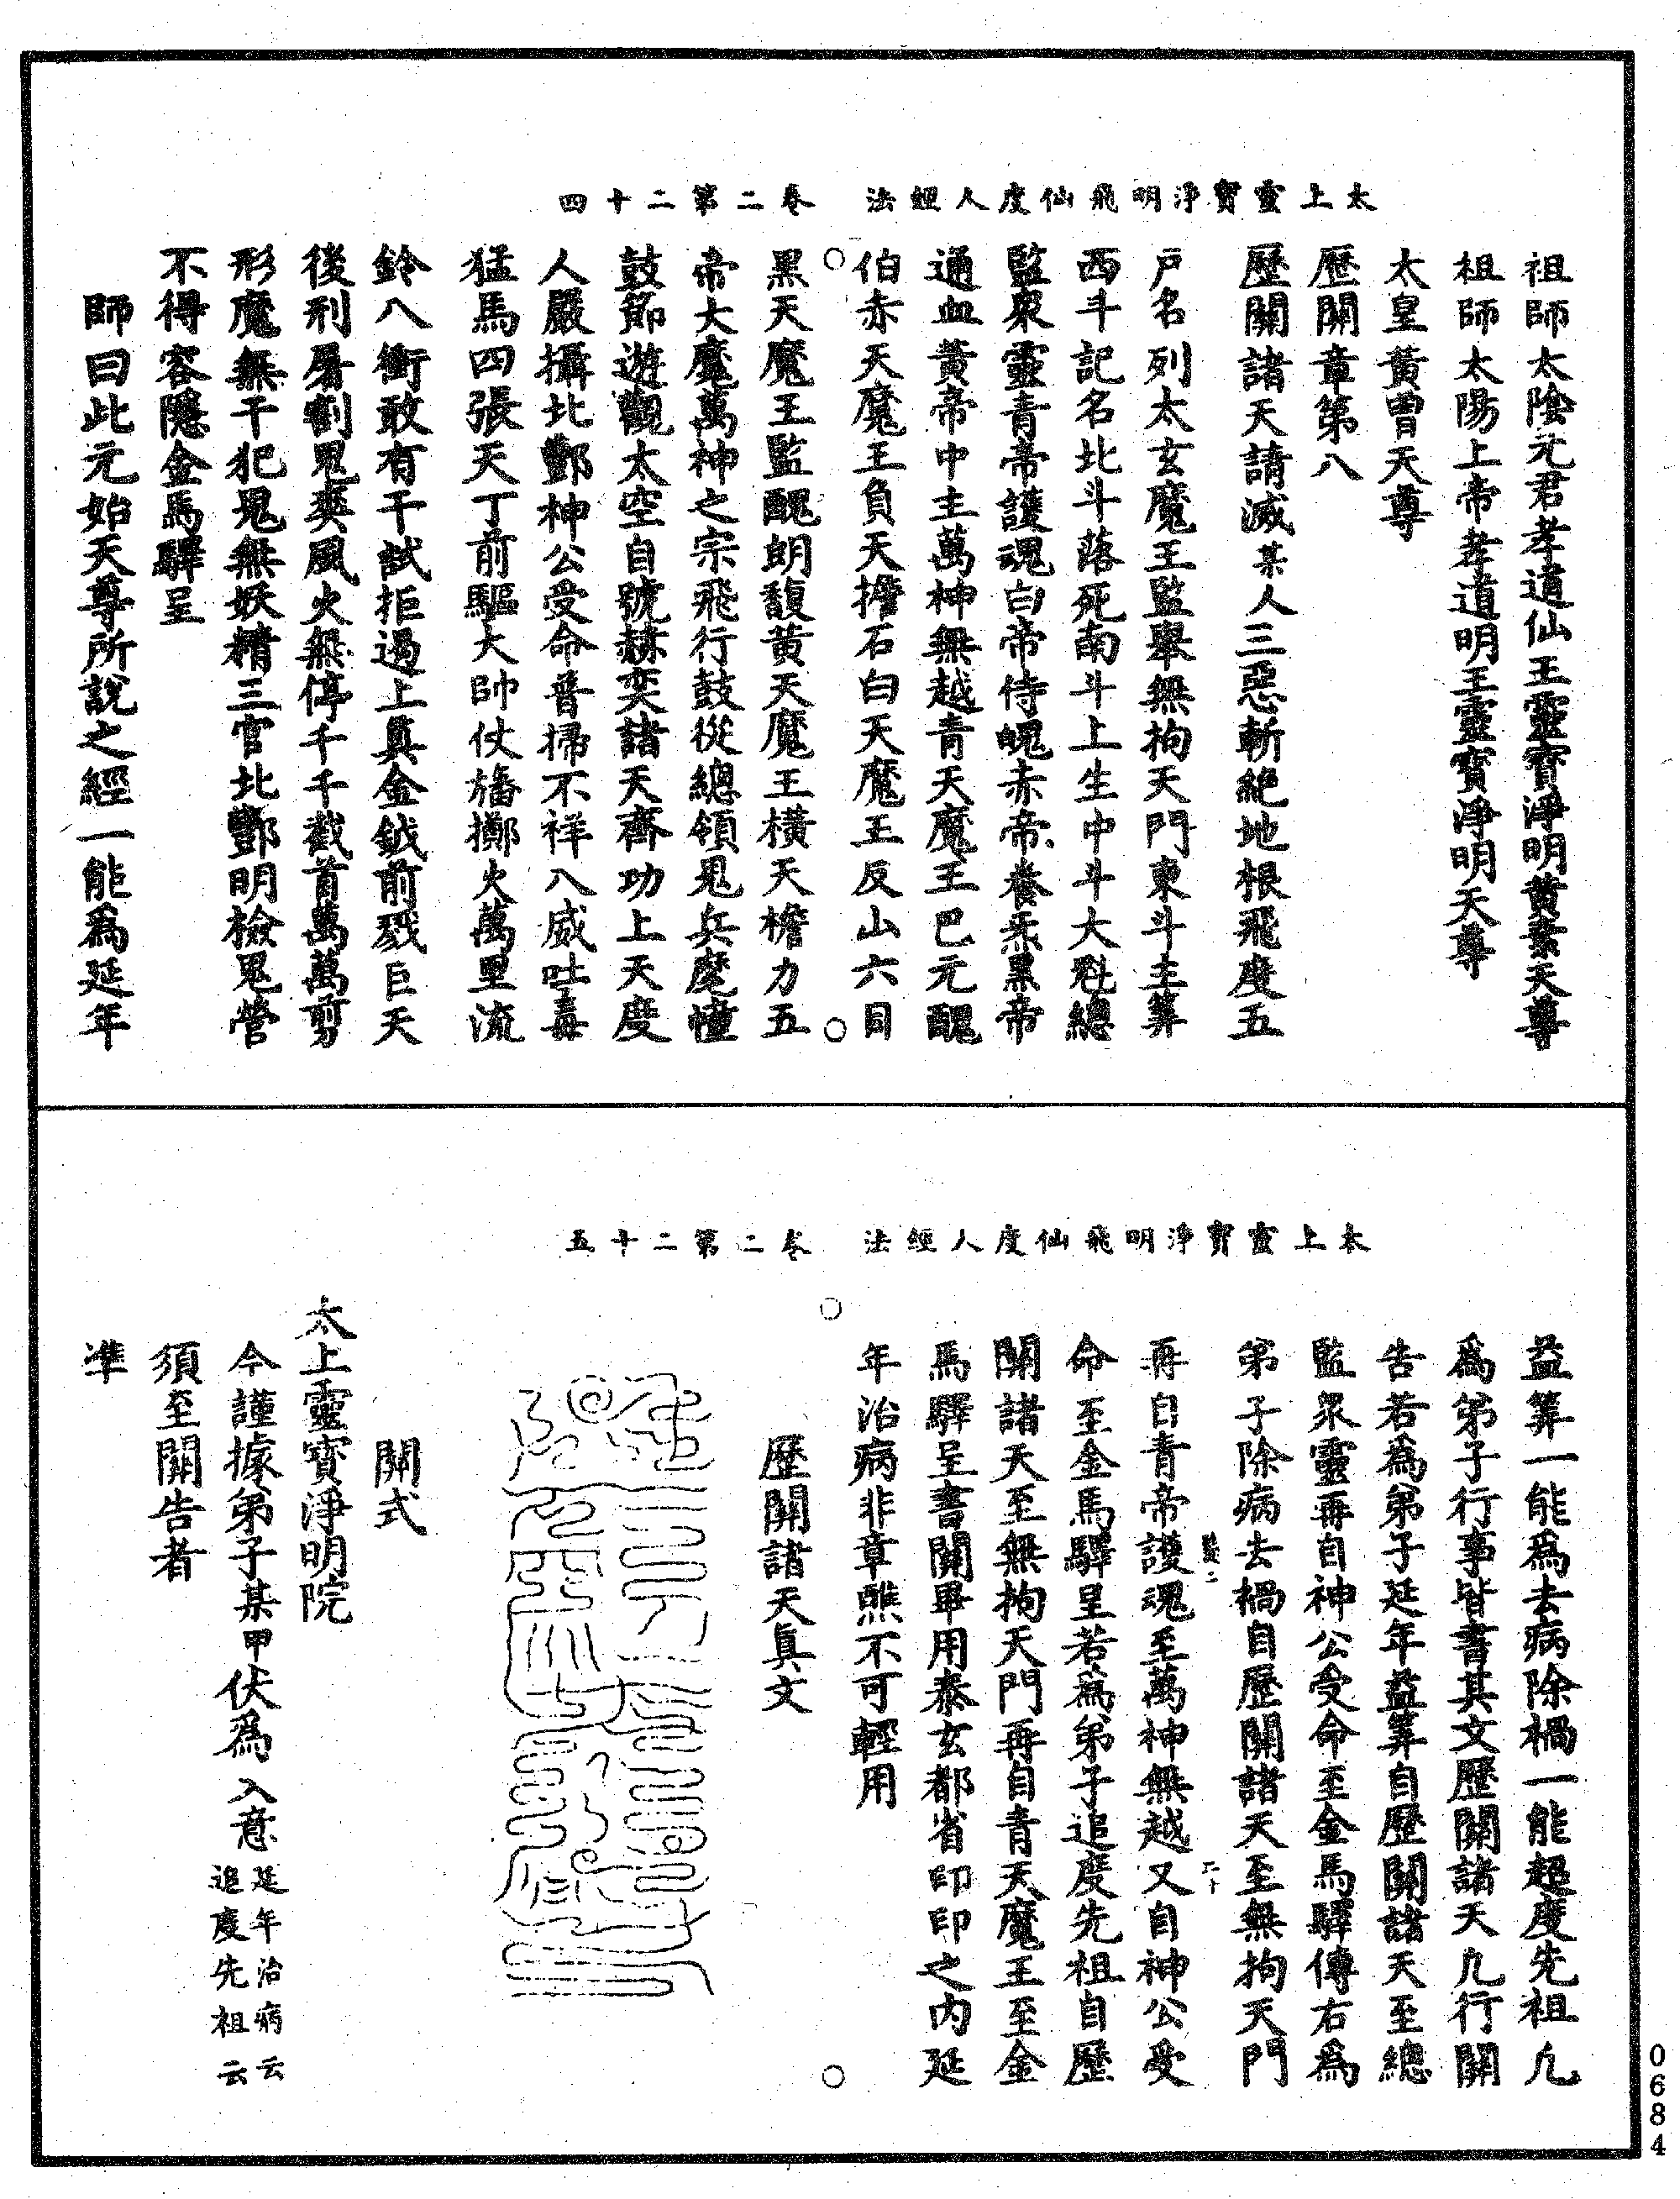 太上靈寶淨明飛仙度人經法　卷二第二十四
祖師太陰元君孝道仙王靈寶淨明黃素天尊
祖師太陽上帝孝道明王靈寶淨明天尊
太皇黃曾天尊
歷關章第八
歷關諸天請滅某人三惡斬絕地根飛度五
戶名列太玄魔王監舉無拘天門東斗主筭
西斗記名北斗落死南斗上生中斗大魁總
監衆靈青帝護魂白帝侍魄赤帝養炁黑帝
通血黃帝中主萬神無越青天魔王巴元醜
伯赤天魔王負天擔石白天魔王反山六目
黑天魔王監醜朗馥黃天魔王橫天檐力五
帝大魔萬神之宗飛行鼓從總領鬼兵麾幢
鼓節遊觀太空自號赫奕諸天齊功上天度
人嚴攝北酆神公受命普掃不祥八威吐毒
猛馬四張天丁前驅大帥仗旛擲火萬里流
鈴八衝敢有干試拒遏上真金鉞前戮巨天
後刑屠割鬼爽風火無停千千截首萬萬剪
形魔無干犯鬼無妖精三官北酆明檢鬼營
不得容隱金馬驛呈
師曰此元始天尊所說之經一能爲延年
太上靈寶淨明飛仙度人經法　卷二第二十五
益筭一能爲去病除禍一能超度先祖凡
爲弟子行事皆書其文歷關諸天凡行關
告若爲弟子延年益筭自歷關諸天至總
監衆靈再自神公受命至金馬驛傳右爲
弟子除病去禍自歷關諸天至無拘天門
再自青帝護魂至萬神無越又自神公受
命至金馬驛呈若爲弟子追度先祖自歷
關諸天至無拘天門再自青天魔王至金
馬驛呈書關畢用泰玄都省印印之內延
年治病非章醮不可輕用
歷關諸天真文
關式
太上靈寶淨明院
今謹據弟子某甲伏爲　入意　延年治病云
追度先祖云
須至關告者
準
0684